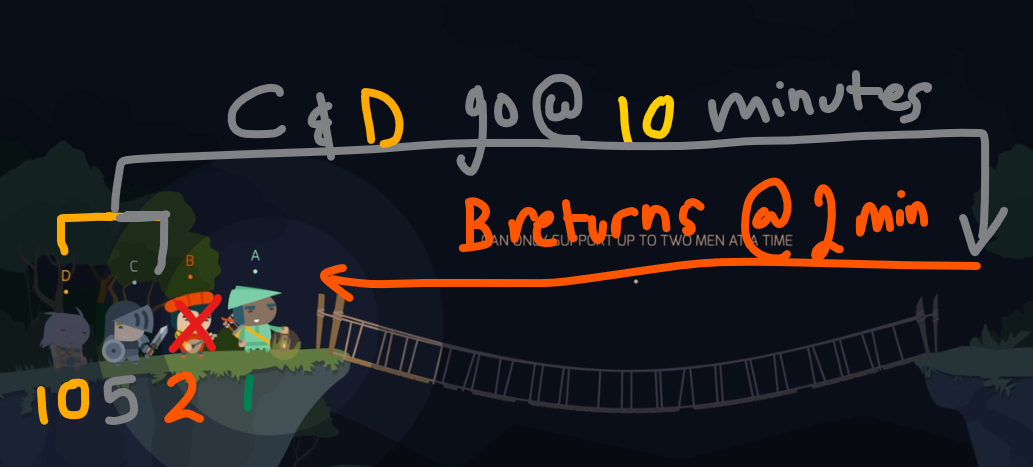 C & D go @ 10 minutes
B returns @ 2 min
CAN ONLY SUPPORT UP TO TWO MEN AT A TIME
D C B A
10 5 2 1